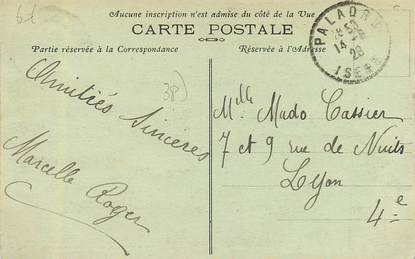 61
Aucune inscription n'est admise du côté de la Vue
CARTE POSTALE
Partie réservée à la Correspondance
Réservée à l'Adresse
PALADRU
14
28
ISERE
38)
Amitiés Sincères
Marcelle Roger
Mlle Mado Cassier
7 et 9 rue de Nuits
Lyon
4e